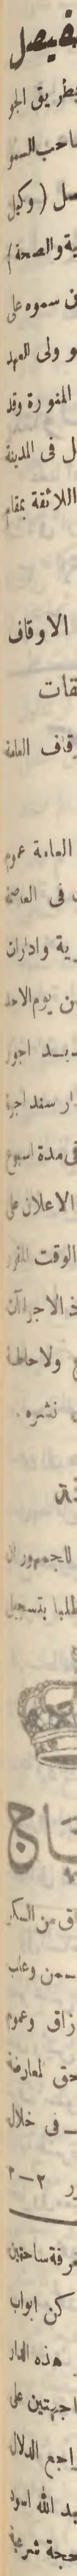 فيصل
بطريق الجو
صاحب السمو
صل (وكيل
ية والصحة)
ن سموه على
و ولى العهد
المنورة وقد
ل فى المدينة
اللائقة بمقام
الاوقاف
قات
وقاف العامة
العامة عموم
فى العاصمة
رية وادارات
من يوم الاحد
اجور
ار سند اجرة
فى مدة اسبوع
الاعلان على
الوقت المقرر
ذ الاجراآت
ولاحاطة
نشره.
للجمهور ان
طلبا بتسجيل
تاج
اق من السكر
من وعلب
زاق وعموم
حق لمعارضة
فى خلال
ر ٢-٣
غرفة ساحتين
كن ابواب
هذه الدار
اجهتين على
اجع الدلال
بد الله اسود
حجة شرعية